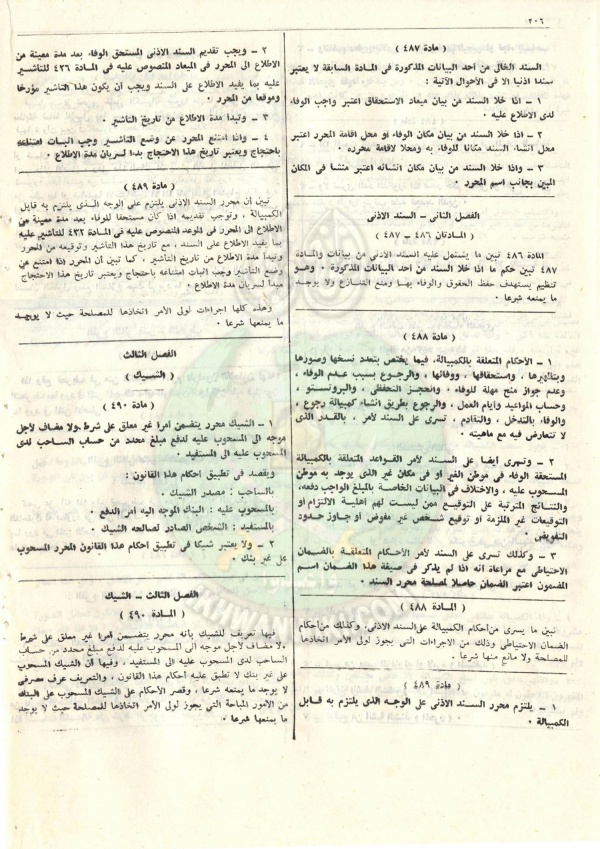 ٢٠٦
( مادة ٤٨٧ )
السند الخال من أحد البيانات المذكورة فى المادة السابقة لا يعتبر
سندا اذنيا الا فى الأحوال الآتية :
١ - اذا خلا السند من بيان ميعاد الاستحقاق اعتبر واجب الوفاء
لدى الاطلاع عليه .
٢ - اذا خلا من بيان مكان الوفاء أو محل اقامة المحرر اعتبر
محل انشاء السند مكانا للوفاء به ومحلا لاقامة محرره .
٣ - واذا خلا السند من بيان مكان انشائه اعتبر منشأ فى المكان
المبين بجانب اسم المحرر .
الفصل الثانى - السند الاذنى
( المادتان ٤٨٦ - ٤٨٧ )
المادة ٤٨٦ تبين ما يشتمل عليه السند الاذنى من بيانات والمادة
٤٨٧ تبين حكم ما اذا خلا السند من أحد البيانات المذكورة . وهو
تنظيم يستهدف حفظ الحقوق والوفاء بها ومنع التنازع ولا يوجد
ما يمنعه شرعا .
( مادة ٤٨٨ )
١ - الأحكام المتعلقة بالكمبيالة، فيما يختص بتعدد نسخها وصورها
وبتظهيرها ، واستحقاقها ، ووفائها ، والرجوع بسبب عدم الوفاء ،
وعدم جواز منح مهلة للوفاء ، والحجز التحفظى ، والبروتستو ،
وحساب المواعيد وأيام العمل ، والرجوع بطريق انشاء كمبيالة رجوع ،
والوفاء بالتدخل ، والتقادم ، تسرى على السند لأمر ، بالقدر الذى
لا تتعارض فيه مع ماهيته .
٢ - وتسرى أيضا على السند لأمر القواعد المتعلقة بالكمبيالة
المستحقة الوفاء فى موطن الغير أو فى مكان غير الذى يوجد به موطن
المسحوب عليه ، والاختلاف فى البيانات الخاصة بالمبلغ الواجب دفعه،
والنتائج المترتبة على التوقيع ممن ليست لهم أهلية الالتزام أو
التوقيعات غير الملزمة أو توقيع شخص غير مفوض أو جاوز حدود
التفويض .
٣ - وكذلك تسرى على السند لأمر الأحكام المتعلقة بالضمان
الاحتياطى مع مراعاة انه اذا لم يذكر فى صيغة هذا الضمان اسم
المضمون اعتبر الضمان حاصلا لمصلحة محرر السند .
( المادة ٤٨٨ )
تبين ما يسرى من أحكام الكمبيالة على السند الاذنى، وكذلك من أحكام
الضمان الاحتياطى وذلك من الاجراءات التى يجوز لولى الأمر اتخاذها
للمصلحة ولا مانع منها شرعا .
( مادة ٤٨٩ )
١ - يلتزم محرر السند الاذنى على الوجه الذى يلتزم به قابل
الكمبيالة .
٢ - ويجب تقديم السند الاذنى المستحق الوفاء بعد مدة معينة من
الاطلاع الى المحرر فى الميعاد المنصوص عليه فى المادة ٤٣٦ للتأشير
عليه بما يفيد الاطلاع على السند ويجب أن يكون هذا التأشير مؤرخا
وموقعا من المحرر .
٣ - وتبدأ مدة الاطلاع من تاريخ التأشير .
٤ - واذا امتنع المحرر عن وضع التأشير وجب اثبات امتناعه
باحتجاج ويعتبر تاريخ هذا الاحتجاج بدءا لسريان مدة الاطلاع .
( مادة ٤٨٩ )
تبين أن محرر السند الاذنى يلتزم على الوجه الذى يلتزم به قابل
الكمبيالة ، وتوجب تقديمه اذا كان مستحقا للوفاء بعد مدة معينة من
الاطلاع الى المحرر فى الموعد المنصوص عليه فى المادة ٤٣٢ للتأشير عليه
بما يفيد الاطلاع على السند ، مع تاريخ هذا التأشير وتوقيعه من المحرر
وتبدأ مدة الاطلاع من تاريخ التأشير ، كما تبين أن المحرر اذا امتنع عن
وضع التأشير وجب اثبات امتناعه باحتجاج ويعتبر تاريخ هذا الاحتجاج
بدءا لسريان مدة الاطلاع .
وهذه كلها اجراءات لولى الأمر اتخاذها للمصلحة حيث لا يوجد
ما يمنعها شرعا .
الفصل الثالث
( الشيك )
( مادة ٤٩٠ )
١ - الشيك محرر يتضمن أمرا غير معلق على شرط ولا مضاف لأجل
موجه الى المسحوب عليه لدفع مبلغ محدد من حساب الساحب لدى
المسحوب عليه الى المستفيد .
ويقصد فى تطبيق أحكام هذا القانون :
بالساحب : مصدر الشيك .
بالمسحوب عليه : البنك الموجه اليه أمر الدفع .
بالمستفيد : الشخص الصادر لصالحه الشيك .
٢ - ولا يعتبر شيكا فى تطبيق أحكام هذا القانون المحرر المسحوب
على غير بنك .
الفصل الثالث - الشيك
( المادة ٤٩٠ )
فيها تعريف للشيك بأنه محرر يتضمن أمرا غير معلق على شرط
ولا مضاف لأجل موجه الى المسحوب عليه لدفع مبلغ محدد من حساب
الساحب لدى المسحوب عليه الى المستفيد ، وفيها أن الشيك المسحوب
على غير بنك لا تطبق عليه أحكام هذا القانون ، والتعريف عرف مصرفى
لا يوجد ما يمنعه شرعا ، وقصر الأحكام على الشيك المسحوب على البنك
من الأمور المباحة التى يجوز لولى الأمر اتخاذها للمصلحة حيث لا يوجد
ما يمنعها شرعا .